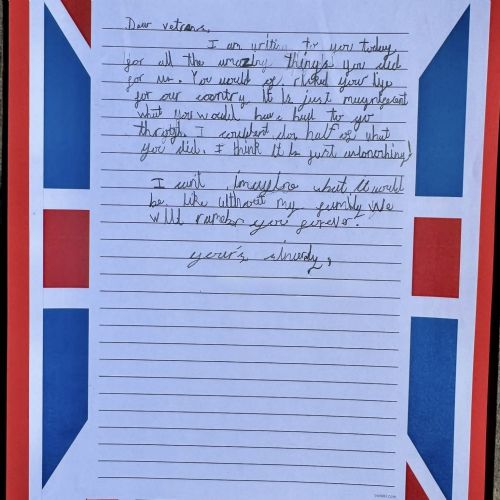 Dear vetrans,
I am writing to you today
for all the amazing things you did
for us. You would of risked your life
for our country. It Is just magnificent
what you would have had to go
through. I couldent do half of what
you did. I think It Is just astonoshing!
I can't imagine what It would
be like without my family. We
will rember you forever.
your's sincerely,